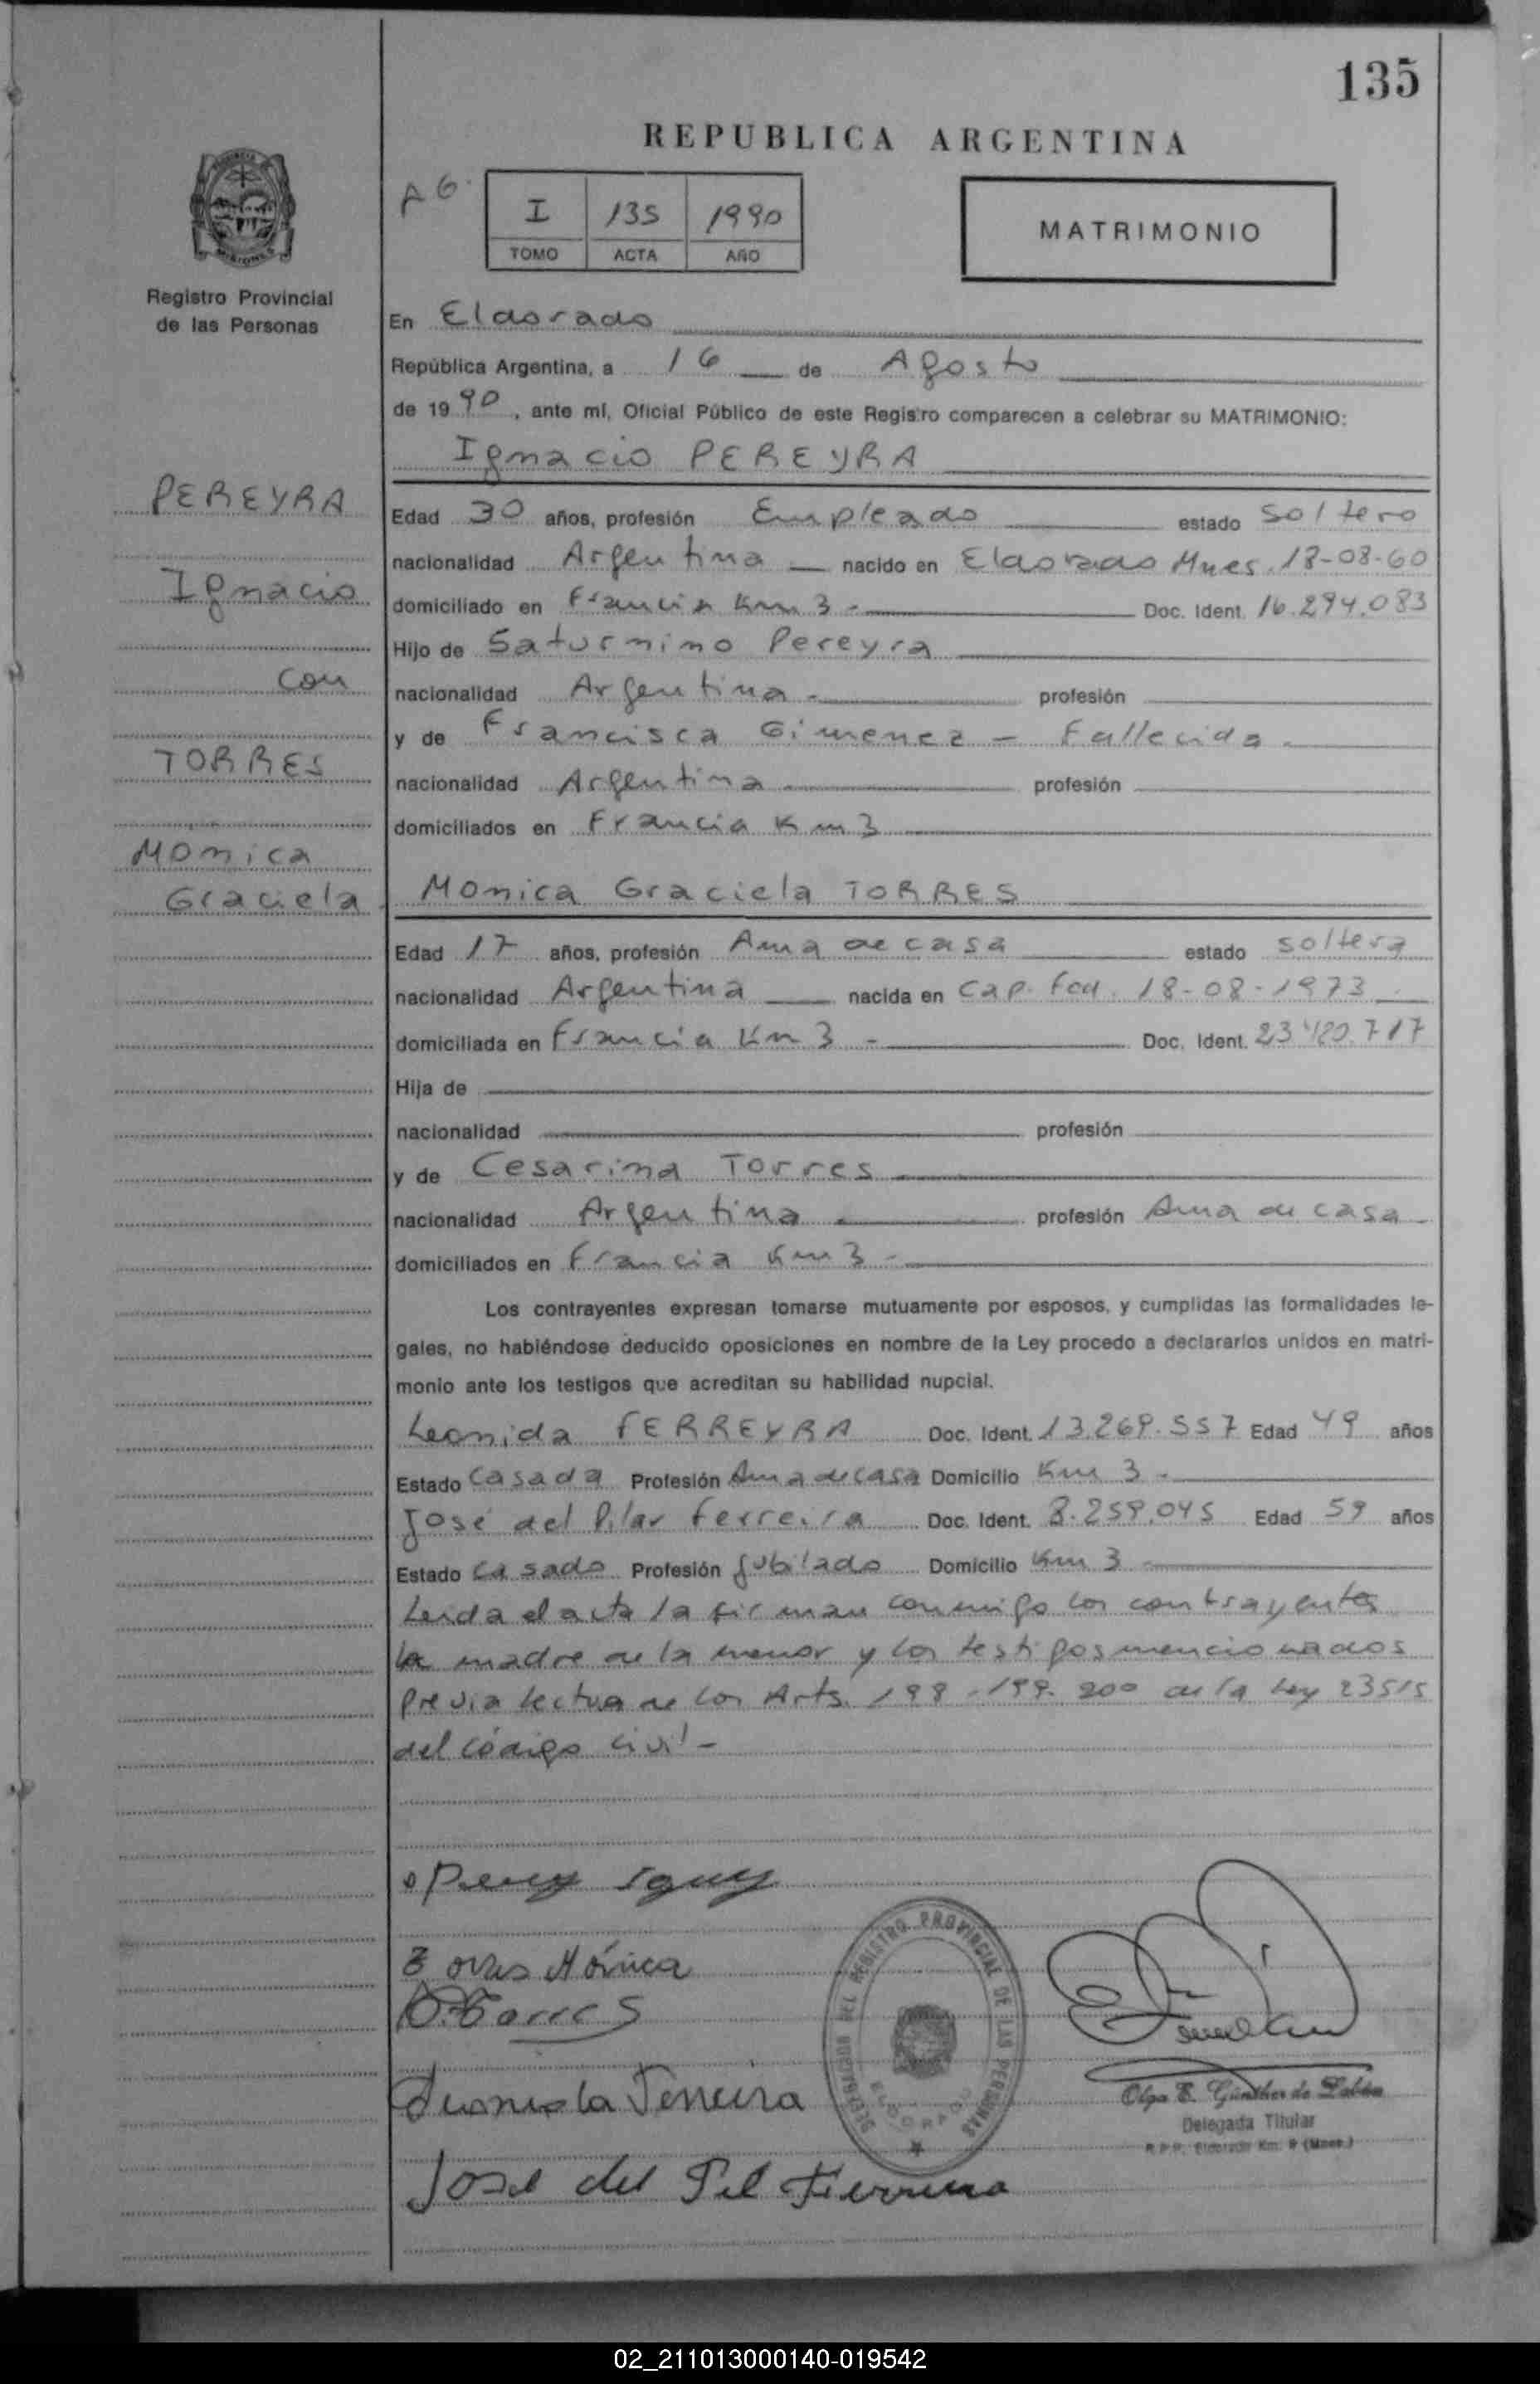 135
REPUBLICA ARGENTINA
A G.
I 135 1990
TOMO ACTA AÑO
MATRIMONIO
Registro Provincial
de las Personas
En Eldorado
República Argentina, a 16 de Agosto
de 1990, ante mí, Oficial Público de este Registro comparecen a celebrar su MATRIMONIO:
Ignacio PEREYRA
PEREYRA
Ignacio
con
TORRES
Monica
Graciela
Edad 30 años, profesión Empleado estado soltero
nacionalidad Argentina nacido en Eldorado Mnes. 18-08-60
domiciliado en Francia Km 3 - Doc. Ident. 16.294.083
Hijo de Saturnino Pereyra
nacionalidad Argentina - profesión
y de Francisca Gimenez - Fallecida -
nacionalidad Argentina profesión
domiciliados en Francia Km 3
Monica Graciela TORRES
Edad 17 años, profesión Ama de casa estado soltera
nacionalidad Argentina nacida en Cap. Fed. 18-08-1973
domiciliada en Francia Km 3 - Doc. Ident. 23.480.717
Hija de
nacionalidad profesión
y de Cesarina Torres
nacionalidad Argentina profesión Ama de casa
domiciliados en Francia Km 3 -
Los contrayentes expresan tomarse mutuamente por esposos, y cumplidas las formalidades le-
gales, no habiéndose deducido oposiciones en nombre de la Ley procedo a declararlos unidos en matri-
monio ante los testigos que acreditan su habilidad nupcial.
Leonida FERREYRA Doc. Ident. 13.269.557 Edad 49 años
Estado Casada Profesión Ama de casa Domicilio Km 3 -
José del Pilar Ferreira Doc. Ident. 8.259.045 Edad 59 años
Estado casado Profesión Jubilado Domicilio Km 3
Leida el acta la firman conmigo los contrayentes
la madre de la menor y los testigos mencionados
previa lectura de los Arts. 198-199-200 de la Ley 23515
del código civil -
Torres Mónica
C. Torres
Ferreira
José del Pil Ferreira
DELEGADO DEL REGISTRO PROVINCIAL DE LAS PERSONAS
ELDORADO
Olga E. Günther de
Delegada Titular
R.P.P. Eldorado Km. 9 (Mnes.)
02_211013000140-019542